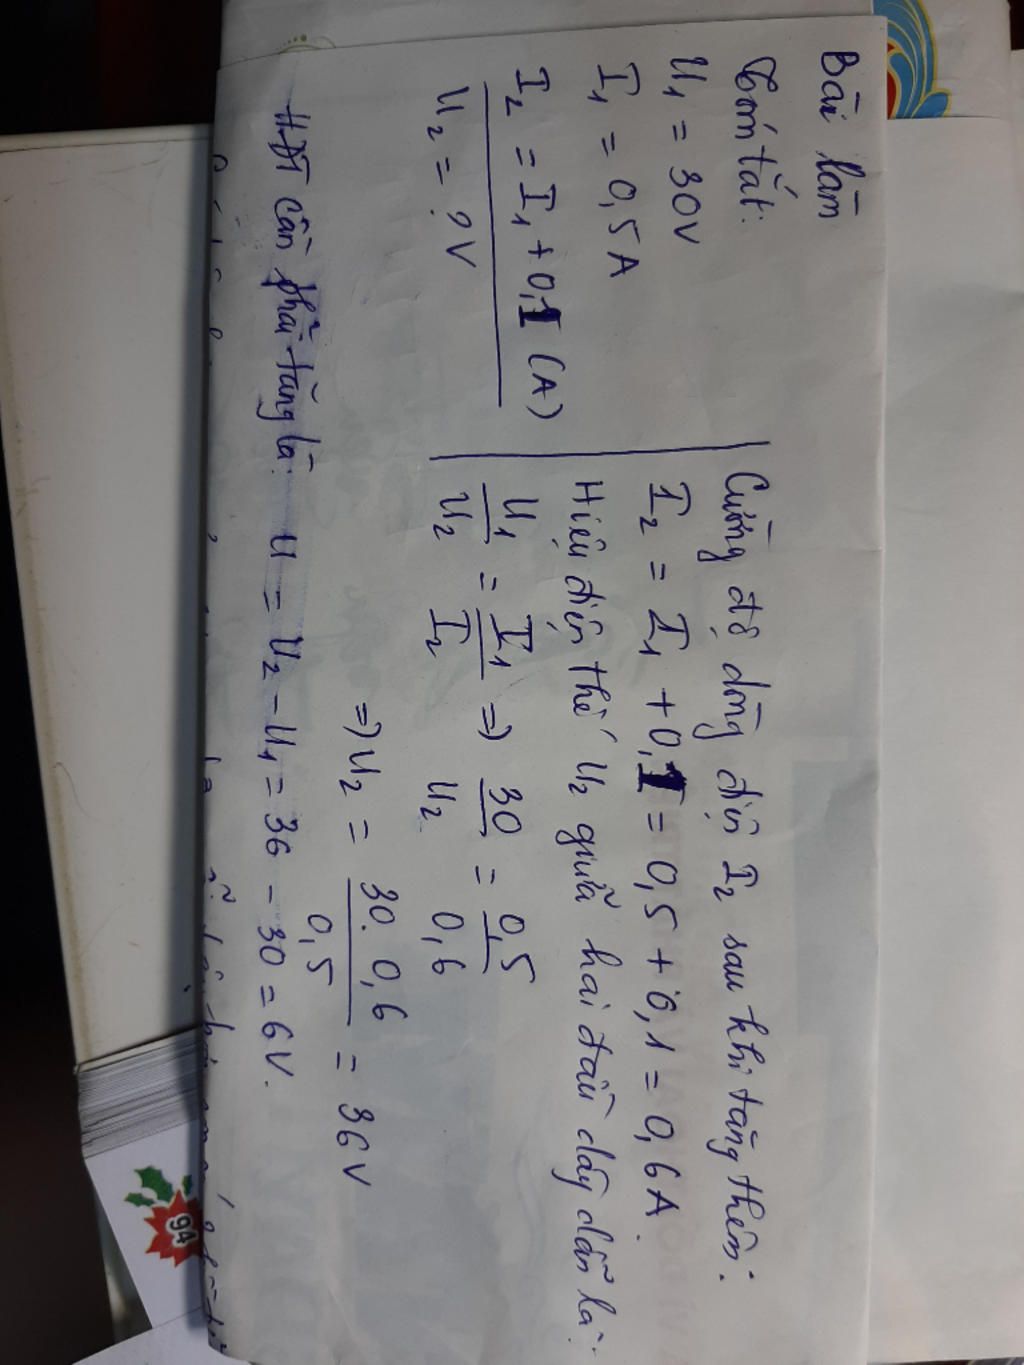 Bài làm
Tóm tắt:
U1 = 30V
I1 = 0,5A
I2 = I1 + 0,1 (A)
U2 = ? V
Cường độ dòng điện I2 sau khi tăng thêm:
I2 = I1 + 0,1 = 0,5 + 0,1 = 0,6A.
Hiệu điện thế U2 giữa hai đầu dây dẫn là:
U1/U2 = I1/I2 => 30/U2 = 0,5/0,6
=> U2 = 30.0,6/0,5 = 36V
HĐT cần phải tăng là: U = U2 - U1 = 36 - 30 = 6V.
94